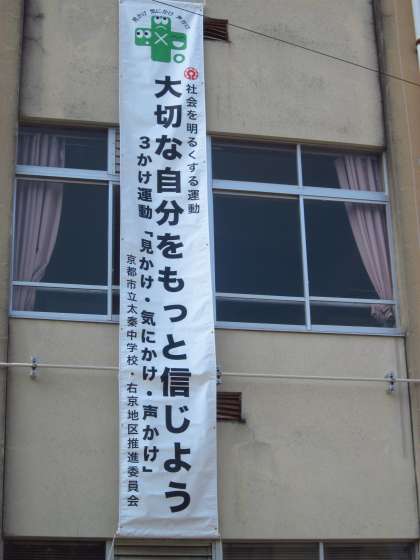 見かけ 気にかけ 声かけ
社会を明るくする運動
大切な自分をもっと信じよう
3かけ運動「見かけ・気にかけ・声かけ」
京都市立太秦中学校・右京地区推進委員会